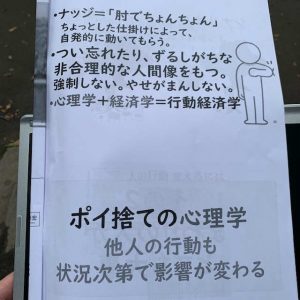 ・ナッジ＝「肘でちょんちょん」
ちょっとした仕掛けによって、
自発的に動いてもらう。
・つい忘れたり、ずるしがちな
非合理的な人間像をもつ。
強制しない。やせがまんしない。
・心理学＋経済学＝行動経済学
ポイ捨ての心理学
他人の行動も
状況次第で影響が変わる